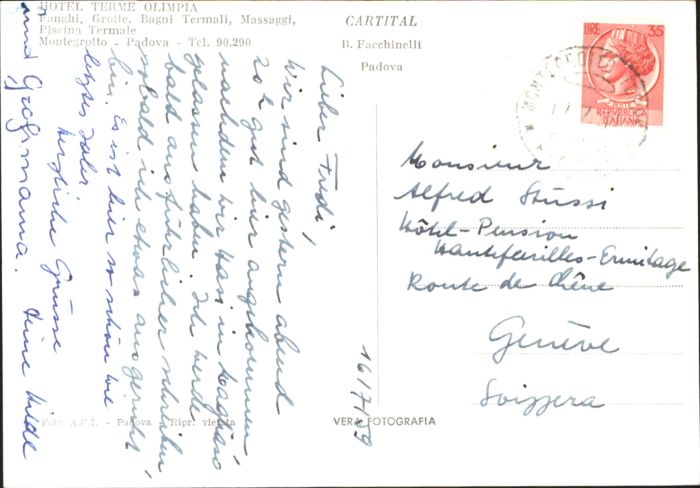 HOTEL TERME OLIMPIA
Fanghi, Grotte, Bagni Termali, Massaggi,
Piscina Termale
Montegrotto - Padova - Tel. 90.290
CARTITAL
B. Facchinelli
Padova
LIRE 35
REPUBBLICA
ITALIANA
Lieber Fredi,
Wir sind gestern abend
20h gut hier angekommen
nachdem wir Kasi in
gelassen haben. Ich werde
bald ausführlicher schreiben
sobald ich etwas ausgeruht
bin. Es ist hier so schön wie
letztes Jahr.
herzliche Grüsse
Deine Hilde
und Grossmama.
16/7/59
Monsieur
Alfred Stüssi
Hôtel-Pension
Hautefeuilles-Ermitage
Route de Chêne
Genève
Svizzera
Foto A.F.I. - Padova - Ripr. vietata
VERA FOTOGRAFIA